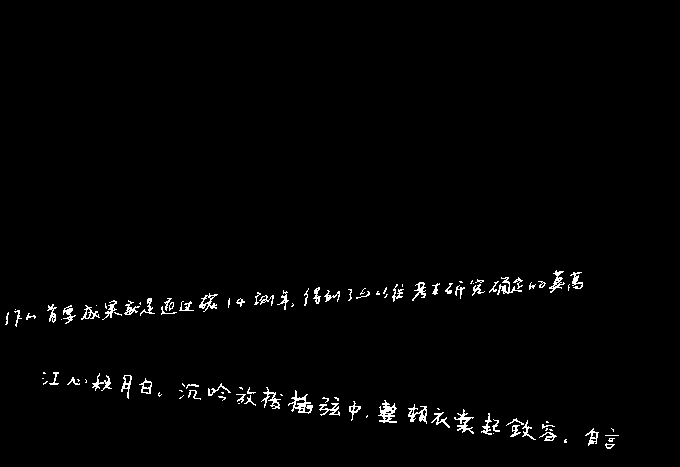 作的首要成果就是通过碳14测年，得到了与以往考古研究确定的莫高
江心秋月白。沉吟放拨插弦中，整顿衣裳起敛容。自言